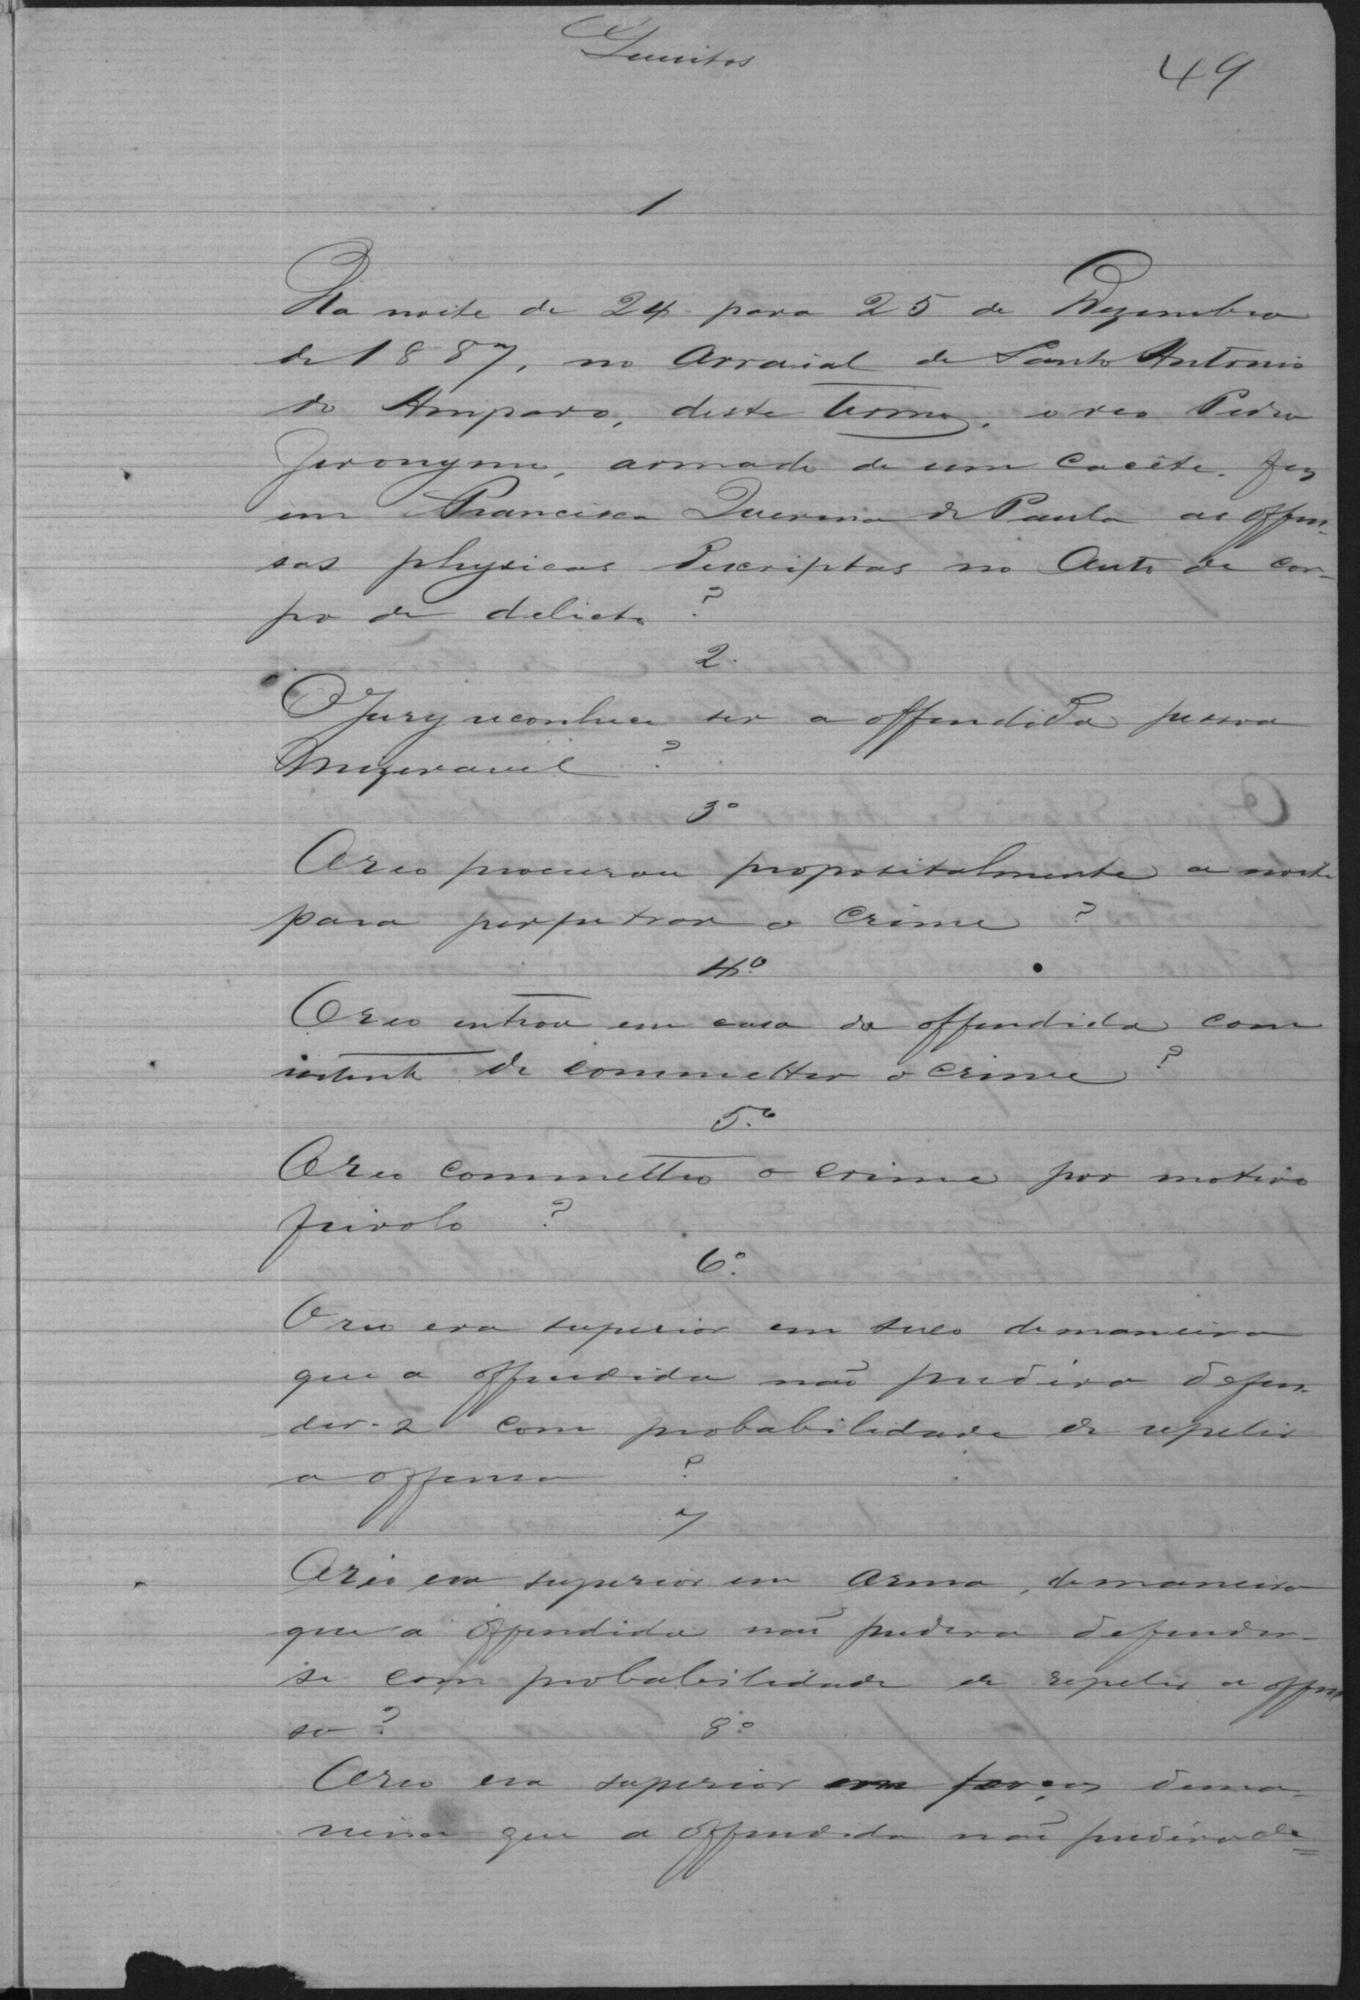 Quesitos
49
1
Na noite de 24 para 25 de Dezembro
de 1887, no Arraial de Santo Antonio
do Amparo, deste termo, o reo Pedro
Jeronymo, armado de um cacête, fez
em Francisca Querina de Paula as offen-
sas physicas descriptas no Auto de cor-
po de delicto ?
2.
O Jury reconhece ser a offendida pessoa
mizeravel ?
3º
O reo procurou propositalmente a noite
para perpetrar o crime ?
4º
O reo entrou em casa da offendida com
intento de commetter o crime ?
5º
O reo commetteo o crime por motivo
frivolo ?
6º
O reo era superior em sexo de maneira
que a offendida não pudéra defen-
der-se com probabilidade de repelir
a offensa ?
7
O reo era superior em arma, de maneira
que a offendida não pudera defender-
se com probabilidade de repelir a offen
sa ?
8º
O reo era superior em forças de ma-
neira que a offendida não pudéra de=